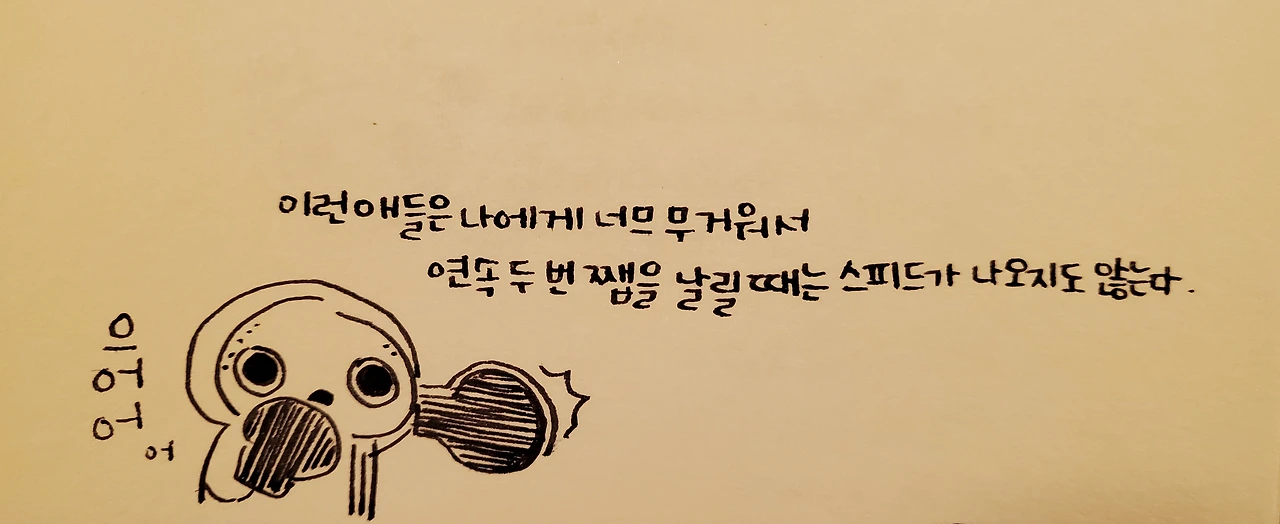 이런 애들은 나에게 너무 무거워서
연속 두 번 쨉을 날릴 때는 스피드가 나오지도 않는다.